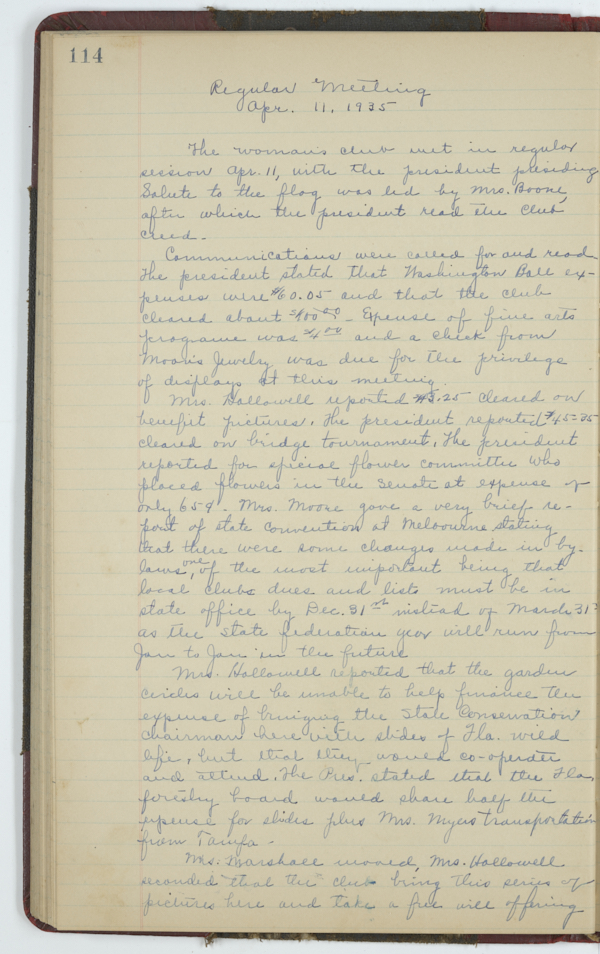 114
Regular Meeting
Apr. 11, 1935
The woman's club met in regular
session Apr. 11, with the president presiding
Salute to the flag was led by Mrs. Boone,
after which the president read the Club
Creed.
Communications were called for and read.
The president stated that Washington Ball ex-
penses were $60.05 and that the club
cleared about $100.00 - Expense of fine arts
programe was $4.00 and a check from
Moon's Jewelry was due for the privilege
of displays at this meeting.
Mrs. Hollowell reported cleared on
benefit pictures. The president reported $45=35
cleared on bridge tournament. The president
reported for special flower committee who
placed flowers in the Senate at expense of
only 65¢. Mrs. Moore gave a very brief re-
port of state convention at Melbourne stating
that there were some changes made in by-
laws, one of the most important being that
local clubs dues and lists must be in
state office by Dec. 31st instead of March 31
as the State federation year will run from
Jan to Jan in the future
Mrs. Hollowell reported that the garden
circles will be unable to help finance the
expense of bringing the State Conservation
Chairman here with slides of Fla. wild
life, but that they would co-operate
and attend. The Pres. stated that the Fla.
forestry board would share half the
expense for slides plus Mrs. Myers transportation
from Tampa -
Mrs. Marshall moved, Mrs. Hollowell
seconded that the club bring this series of
pictures here and take a free will offering